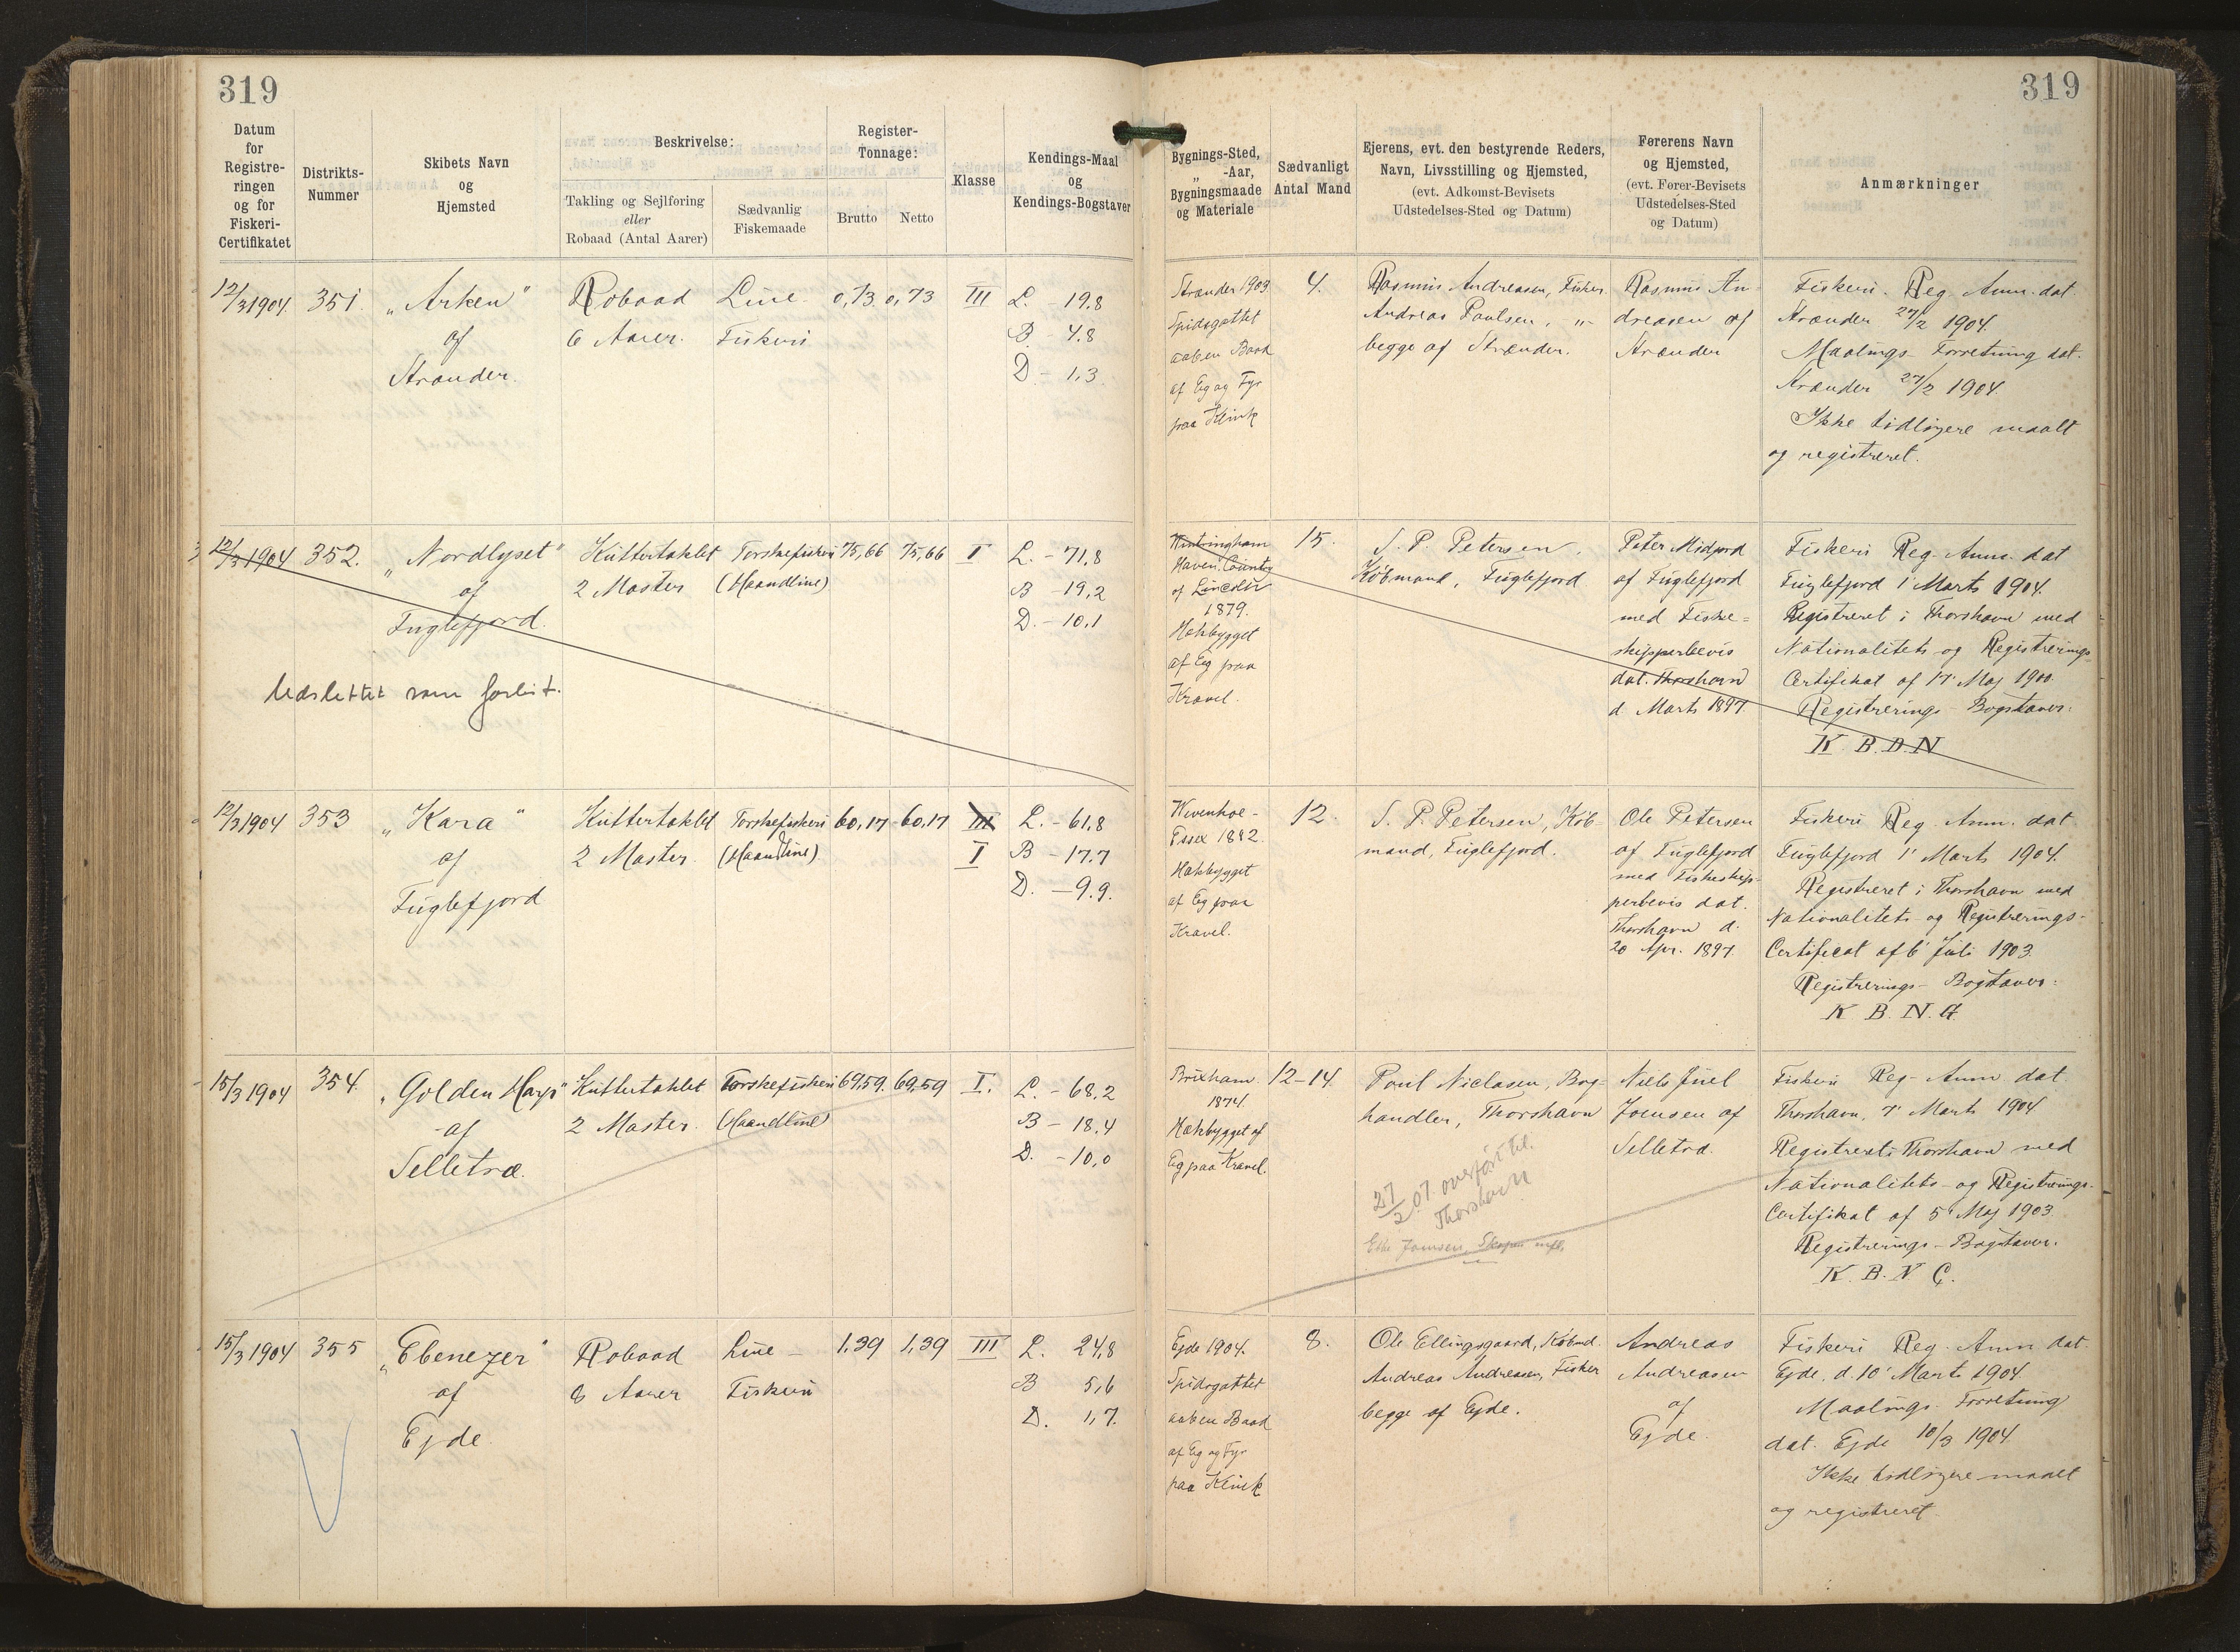 319
319
Datum
for
Registre-
ringen
og for
Fiskeri-
Certifikatet
Distrikts-
Nummer
Skibets Navn
og
Hjemsted
Beskrivelse:
Takling og Sejlføring
eller
Robaad (Antal Aarer)
Sædvanlig
Fiskemaade
Register-
Tonnage:
Brutto
Netto
Klasse
Kendings-Maal
og
Kendings-Bogstaver
Bygnings-Sted,
„ -Aar,
Bygningsmaade
og Materiale
Sædvanligt
Antal Mand
Ejerens, evt. den bestyrende Reders,
Navn, Livsstilling og Hjemsted,
(evt. Adkomst-Bevisets
Udstedelses-Sted og Datum)
Førerens Navn
og Hjemsted,
(evt. Fører-Bevisets
Udstedelses-Sted
og Datum)
Anmærkninger
12/3 1904
351.
„Arken"
af
Strænder.
Robaad
6 Aarer.
Line-
Fiskeri
0,73
0,73
III
L. - 19.8
B. - 4.8
D. - 1,3.
Strænder 1903.
Spidsgattet
aaben Baad
af Eg og Fyr
paa Klink
4.
Rasmus Andreasen, Fisker.
Andreas Poulsen, "-
begge af Strænder.
Rasmus An-
dreasen af
Strænder
Fiskeri-Reg. Anm. dat.
Strænder 27/2 1904.
Maalings-Forretning dat.
Strænder 27/2 1904.
Ikke tidligere maalt
og registreret.
12/3 1904
352.
„Nordlyset"
af
Fuglefjord.
Udslettet som forlist.
Kuttertaklet
2 Master
Torskefiskeri
(Haandline)
75,66
75,66
I
L. - 71,8
B - 19,2
D. - 10,1
Wintringham
Haven. County
of Lincoln
1879.
Hækbygget
af Eg paa
Kravel.
15.
S. P. Petersen,
Købmand, Fuglefjord
Peter Midjord
af Fuglefjord
med Fiske-
skipperbevis
dat. Thorshavn
d Marts 1897.
Fiskeri Reg. Anm. dat
Fuglefjord 1' Marts 1904.
Registreret i Thorshavn med
Nationalitets-og Registrerings
Certifikat af 17' Maj 1900.
Registrerings-Bogstaver:
K. B. D. N
12/3 1904
353
„Kara"
af
Fuglefjord
Kuttertaklet
2 Master.
Torskefiskeri
(Haandline)
60,17
60,17
III
I
L. - 61,8
B - 17.7
D. - 9.9.
Wivenhoe-
Essex 1882.
Hækbygget
af Eg paa
Kravel.
12.
S. P. Petersen, Køb-
mand, Fuglefjord.
Ole Petersen
af Fuglefjord
med Fiskeskip-
perbevis dat.
Thorshavn d.
20 Apr. 1897.
Fiskeri Reg. Anm. dat
Fuglefjord 1' Marts 1904.
Registreret i Thorshavn med
Nationalitets-og Registrerings-
Certificat af 6' Juli 1903.
Registrerings-Bogstaver:
K. B. N. G.
15/3 1904
354.
„Golden Hays"
af
Selletræ.
Kuttertaklet
2 Master.
Torskefiskeri
(Haandline)
69,59.
69,59
I.
L. - 68,2
B - 18,4
D. - 10,0
Brixham.
1874.
Hækbygget af
Eg paa Kravel.
12-14.
Poul Niclasen, Bog-
handler, Thorshavn
27/2 07 overført til
Thorshavn
Joensen,
Niels Juel
Joensen af
Selletræ.
Fiskeri Reg-Anm. dat.
Thorshavn, 7' Marts 1904
Registreret i Thorshavn med
Nationalitets-og Registrerings-
Certifikat af 5' Maj 1903.
Registrerings-Bogstaver.
K. B. N. C.
15/3 1904
355
„Ebenezer"
af
Ejde
Robaad
8 Aarer
Line-
Fiskeri
1,39
1,39
III
L. 24,8
B 5,6
D. 1,7.
Ejde 1904.
Spidsgattet
aaben Baad
af Eg og Fyr
paa Klink
8.
Ole Ellingsgaard, Købmd.
Andreas Andreasen, Fisker
begge af Ejde.
Andreas
Andreasen
af
Ejde.
Fiskeri Reg. Anm dat.
Ejde, d. 10' Marts 1904.
Maalings-Forretning
dat. Ejde 10/3 1904.
Ikke tidligere maalt
og registreret.